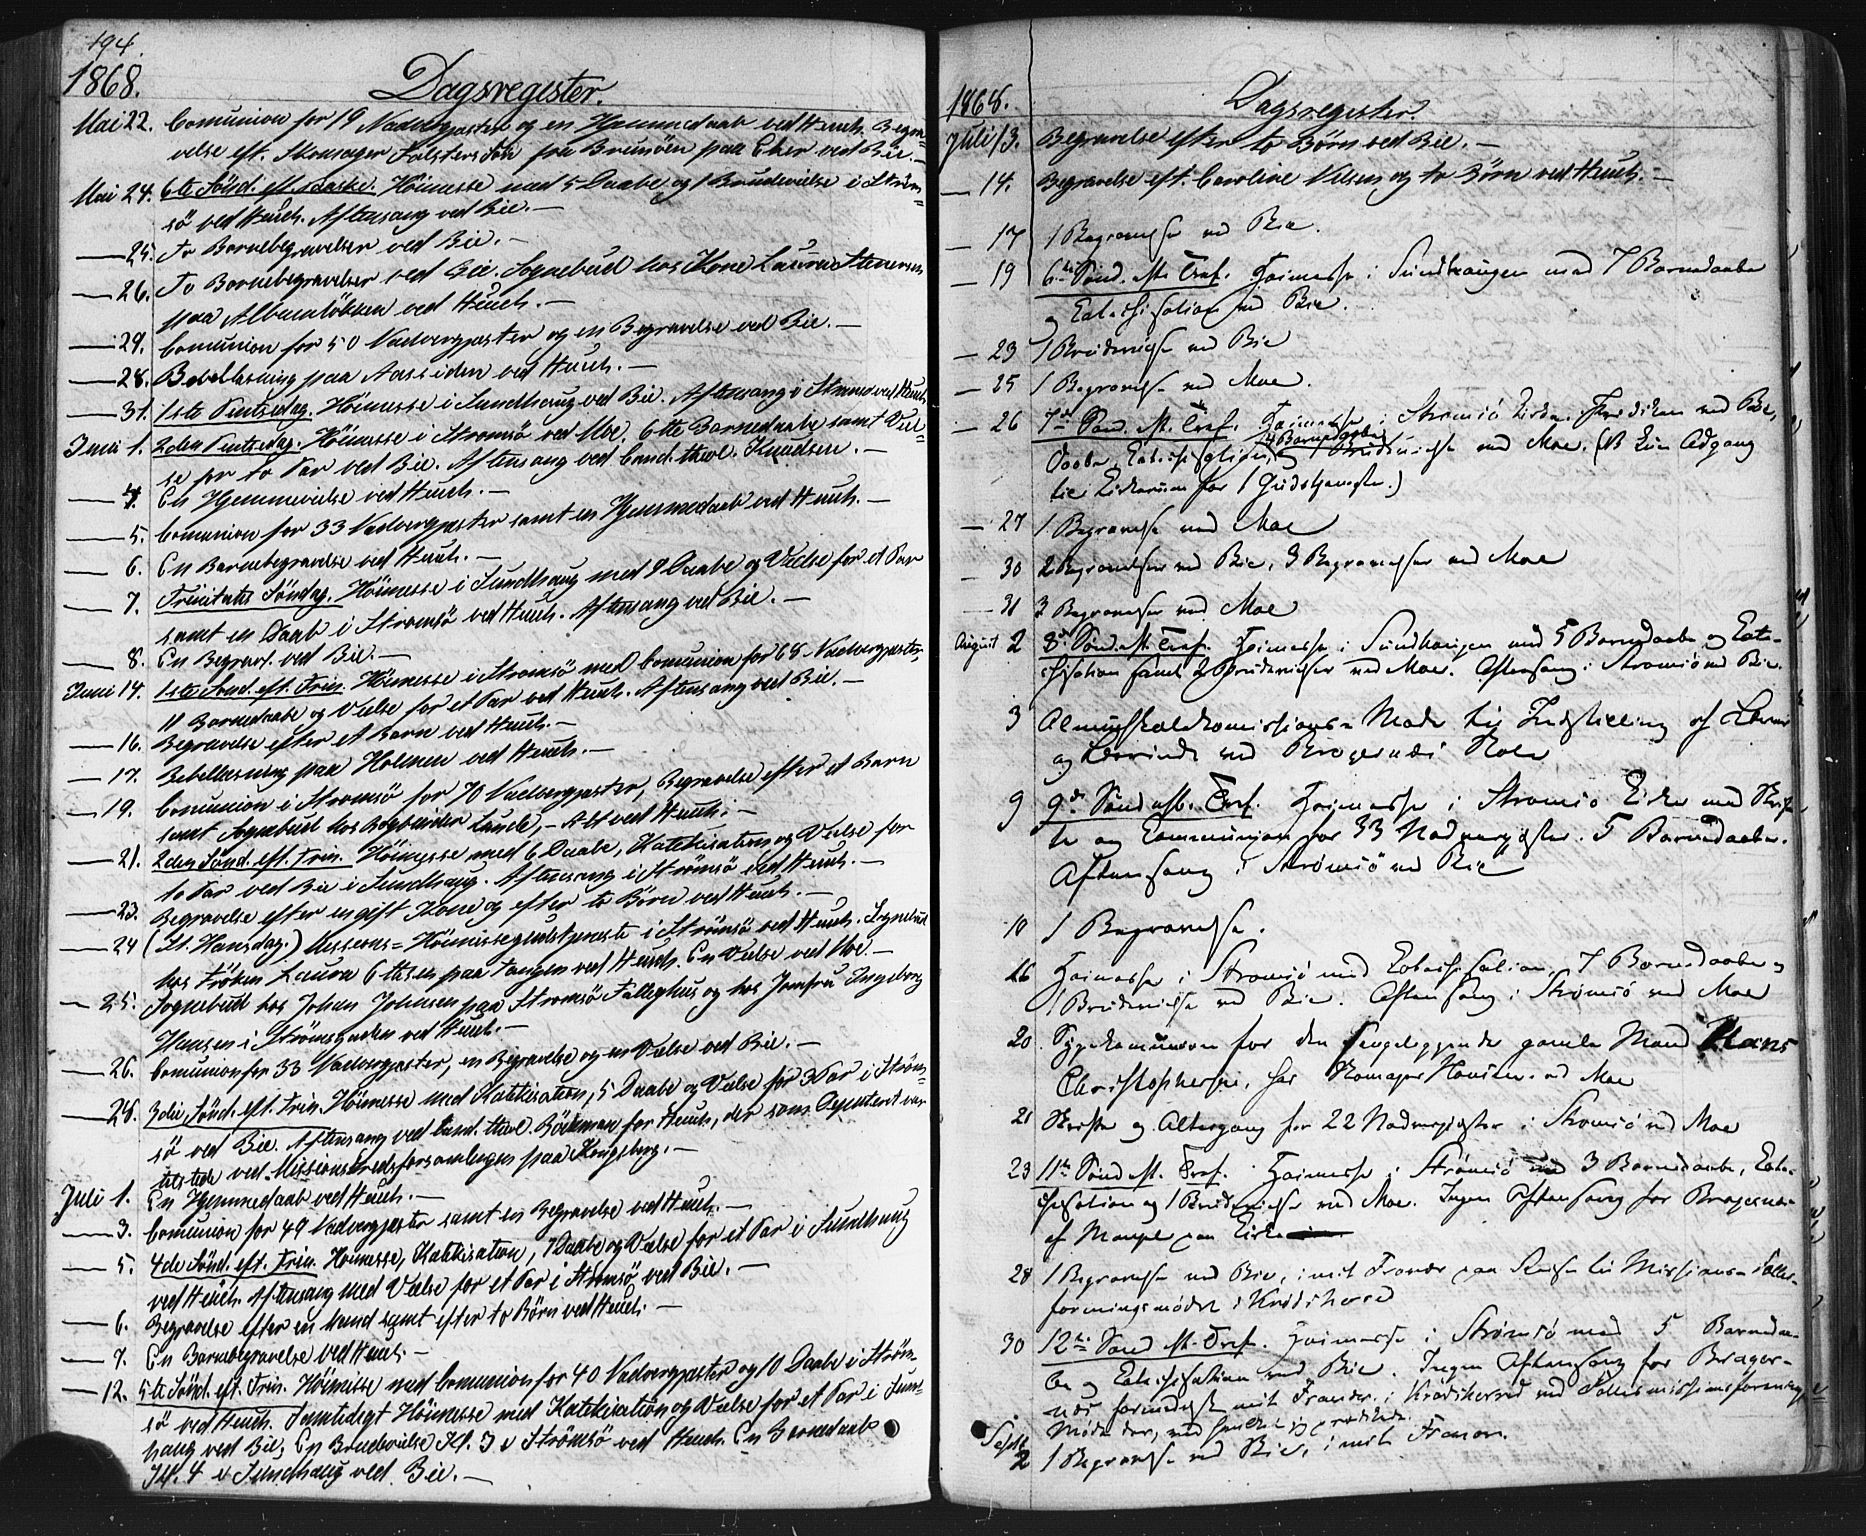 194.
1868. Dagsregister.
Mai 22. Comunion for 19 Nadvergjæster og en Hjemmedaab ved Heuch. Begra=
velse eft. Skomager Falsters Søn fra Brunöen paa Eker ved Bie. —
Mai 24. 6te Sönd. eft. Paaske. Höimesse med 5 Daabe og 1 Brudevielse i Ström=
sö ved Heuch. Aftensang ved Bie. —
— 25. To Barnebegravelser ved Bie. —
— 26. To Barnebegravelser ved Bie. Sognebud hos Kone Laura
paa Albumlökken ved Heuch. —
— 29. Comunion for 50 Nadvergjæster og en Begravelse ved Bie. —
— 28. Bibellæsning paa Aassiden ved Heuch. —
— 31. 1ste Pintsedag. Höimesse i Sundhaug ved Bie. Aftensang i Strømsø ved Heuch
Juni 1. 2den Pintsedag. Höimesse i Strømsö ved Moe. 6tte Barnedaabe samt Viel=
se for to Par ved Bie. Aftensang ved Cand. theol. Knudsen. —
— 4. En Hjemmevielse ved Heuch. —
— 5. Comunion for 33 Nadvergjæster samt en Hjemmedaab ved Heuch. —
— 6. En Barnebegravelse ved Heuch. —
— 7. Trinitatis Söndag. Höimesse i Sundhaug med 9 Daabe og Vielse for et Par
samt en Daab i Strømsö ved Heuch. Aftensang ved Bie. —
— 8. En Begravl. ved Bie. —
Juni 14. 1ste Sönd. eft. Trin. Höimesse i Strømsö med Comunion for 68 Nadvergjæster,
11 Barnedaabe og Vielse for et Par ved Heuch. Aftensang ved Bie. —
— 16. Begravelse efter et Barn ved Heuch. —
— 17. Bibellæsning paa Holmen ved Heuch. —
— 19. Comunion i Strømsö for 70 Nadvergjæster, Begravelse efter et Barn
samt Sognebud hos Bogbinder Lande, – Alt ved Heuch. —
— 21. 2den Sönd. eft. Trin. Höimesse med 6 Daabe, Katekisation og Vielse for
to Par ved Bie i Sundhaug. Aftensang i Strömsö ved Heuch. —
— 23. Begravelse efter en gift Kone og efter to Börn ved Heuch. —
— 24 (St. Hansdag.) Höimessegudstjeneste i Strömsö ved Heuch. Sognebud
hos Fröken Laura Ottesen paa Tangen ved Heuch. En Vielse ved Moe. —
— 25. Sognebud hos Johan Johnsen paa Strömsö Fattighus og hos Jomfru Ingeborg
Hansen i Strömsgaden ved Heuch. —
— 26. Comunion for 33 Nadvergjæster, en Begravelse og en Vielse ved Bie. —
— 28. 3die Sönd. eft. Trin. Höimesse med Katekisation, 5 Daabe og Vielse for 3 Par i Ström=
sö ved Bie. Aftensang ved Cand. theol. Böckman for Heuch, der som Deputeret var
tilstede ved Missionskredsforsamlingen paa Kongsberg. —
Juli 1. En Hjemmedaab ved Heuch. —
— 3. Comunion for 49 Nadvergjæster samt en Begravelse ved Heuch. —
— 5. 4de Sönd. eft. Trin. Höimesse, Katekisation, 7 Daabe og Vielse for et Par i Sundhaug
ved Heuch. Aftensang med Vielse for et Par i Strömsö ved Bie. —
— 6. Begravelse efter en Mand samt efter to Börn ved Heuch. —
— 7. En Barnebegravelse ved Heuch. —
— 12. 5te Sönd. eft. Trin. Höimesse med Comunion for 40 Nadvergjæster og 10 Daabe i Ström=
sö ved Heuch. Samtidigt Höimesse med Katekisation og Vielse for et Par i Sund=
haug ved Bie. En Brudevielse Kl. 3 i Strömsö ved Heuch. En Barnedaab
Kl. 4 i Sundhaug ved Bie. —
1868. Dagsregister.
Juli 13. Begravelse efter to Börn ved Bie. —
— 14. Begravelse eft. Caroline Nilsen og to Börn ved Heuch. —
— 17 1 Begravelse ved Bie.
— 19 6te Sönd. eft. Tref. Høimesse i Sundhaugen med 7 Barnedaabe
og Catechisation ved Bie.
— 23 1 Brudevielse ved Bie
— 25 1 Begravelse ved Moe.
— 26 7de Sönd. eft. Tref. Høimesse i Strømsö Kirke. Prædiken ved Bie,
Daabe, Catechisation, 4 Barnedaabe og 1 Brudevielse ved Moe. (NB Adgang
til for 1 Gudstjeneste.)
— 27 1 Begravelse ved Moe
— 30 2 Begravelser ved Bie, 3 Begravelser ved Moe
— 31 3 Begravelser ved Moe
August 2 8de Sönd. eft. Tref. Høimesse i Sundhaugen med 5 Barnedaabe og Cate-
chisation samt 2 Brudevielser ved Moe. Aftensang i Strømsö ved Bie.
3 Almueskolekomissions-Møde til Indstilling af Lærer
og Lærerinde ved Bragernæs Skole
9 9de Sönd. eft. Tref. Høimesse i Strømsö Kirke med Skrif-
te og Communion for 33 Nadvergjæster. 5 Barnedaabe.
Aftensang i Strømsö ved Bie
10 1 Begravelse.
16 Høimesse i Strømsö med Catechisation, 7 Barnedaabe og
1 Brudevielse ved Bie. Aftensang i Strømsö ved Moe
20 Sygekomunion for den sengeliggende gamle Mand Hans
Christophersen, hos Skomager Hansen. ved Moe
21 Skrifte og Altergang for 22 Nadvergjæster i Strømsö ved Moe
23 11te Sönd. eft. Tref. Høimesse i Strømsö med 3 Barnedaabe, Cate-
chisation og 1 Brudevielse ved Moe. Ingen Aftensang for Bragernæs
af Mangel paa Kirke
28 1 Begravelse ved Bie, i mit Fravær paa Reise til Missions-Fælles-
foreningsmødet i Krødsherred
30 12te Sönd. eft. Tref. Høimesse i Strømsö med 5 Barnedaa-
be og Catechisation ved Bie. Ingen Aftensang for Brager-
næs formedelst mit Fravær i Krødsherred ved Fællesmissionsforenings
Møde der, ved
Septb. 2 1 Begravelse ved Bie, i mit Fravær.